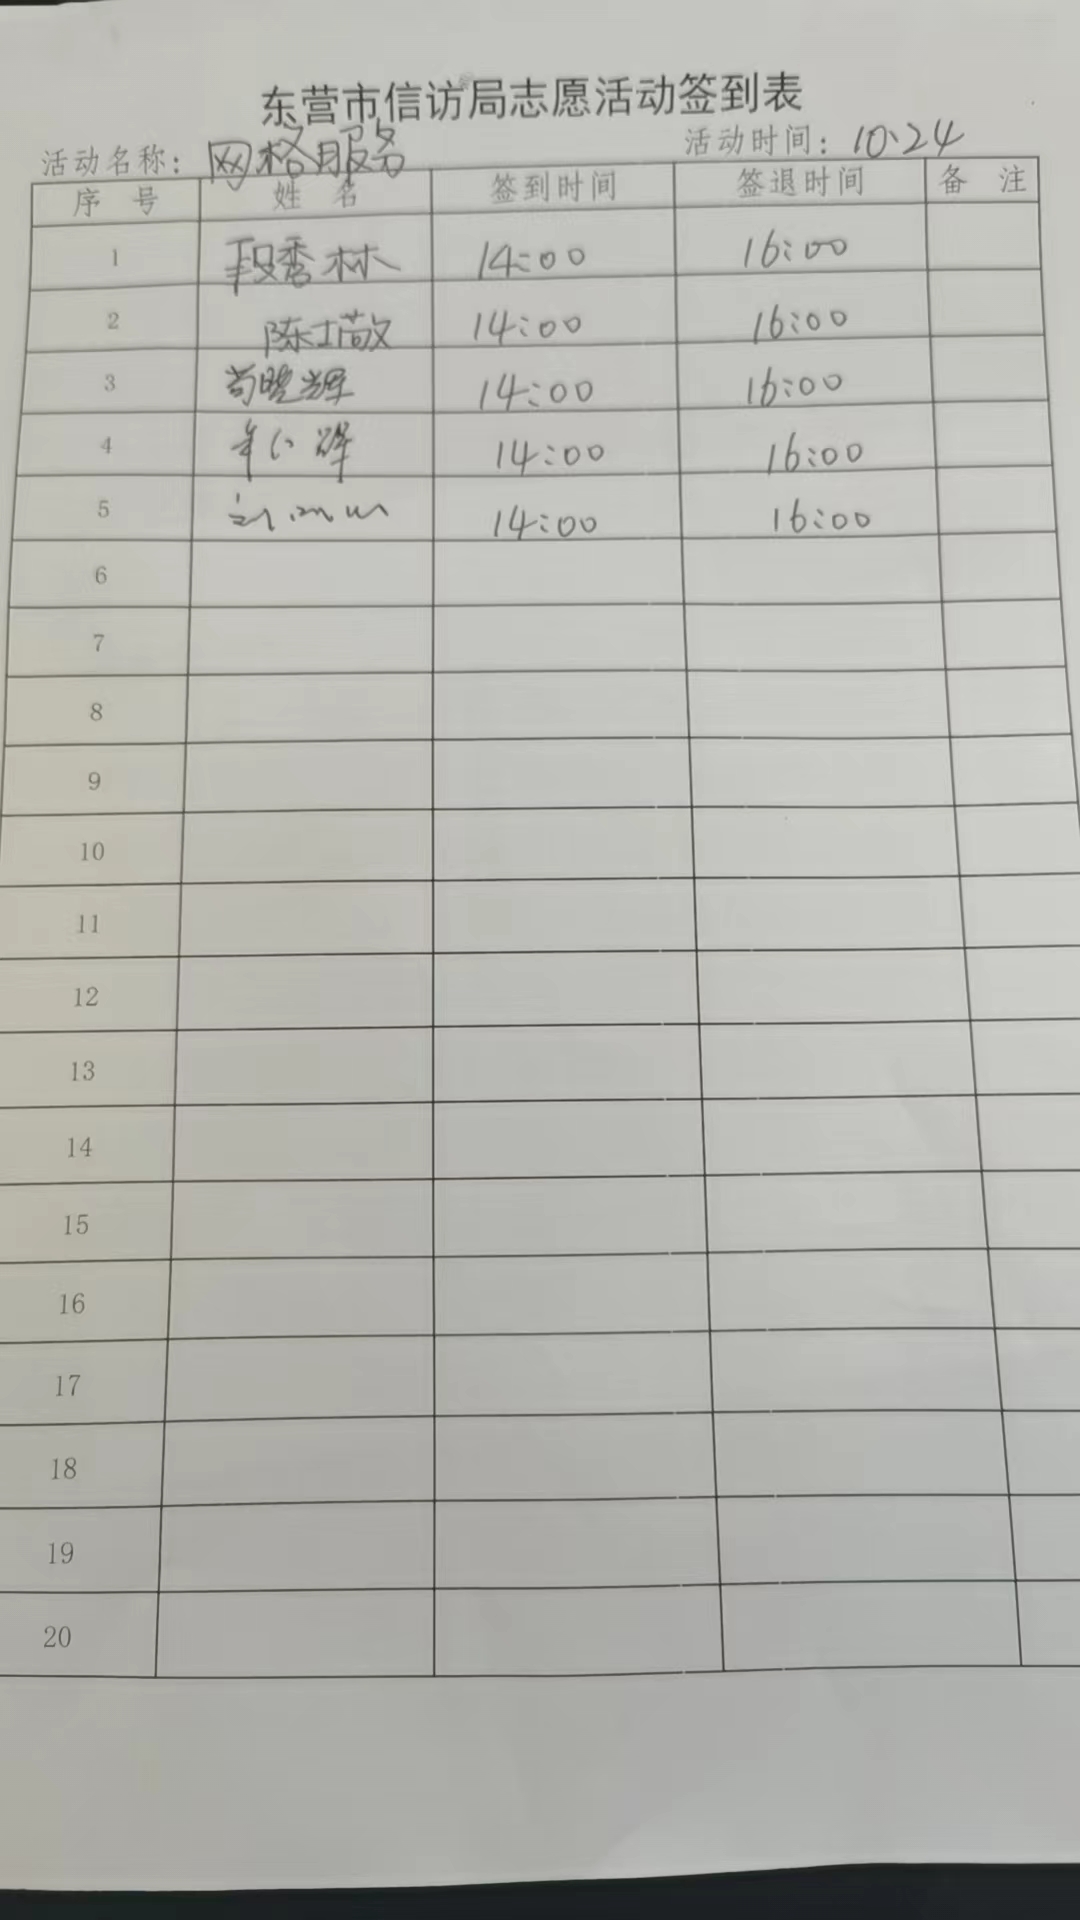 东营市信访局志愿活动签到表
活动名称：网格服务 活动时间：10.24
序 号 姓 名 签到时间 签退时间 备 注
1 段秀林 14:00 16:00
2 陈 14:00 16:00
3 尚晓辉 14:00 16:00
4 14:00 16:00
5 14:00 16:00
6
7
8
9
10
11
12
13
14
15
16
17
18
19
20